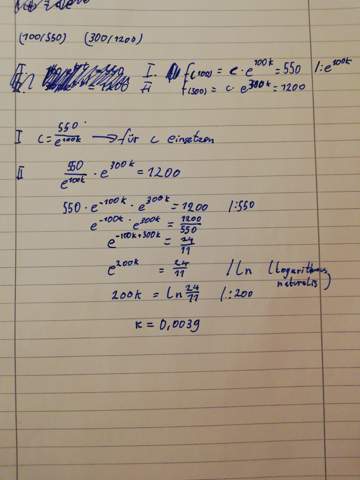 (100/550) (300/1200)
I f(100) = c · e^100k = 550 /: e^100k
II f(300) = c · e^300k = 1200
I c = 550/e^100k → für c einsetzen
II 550/e^100k · e^300k = 1200
550 · e^-100k · e^300k = 1200 /:550
e^-100k · e^300k = 1200/550
e^-100k+300k = 24/11
e^200k = 24/11 / ln (logarithmus naturalis)
200k = ln 24/11 /:200
k = 0,0039